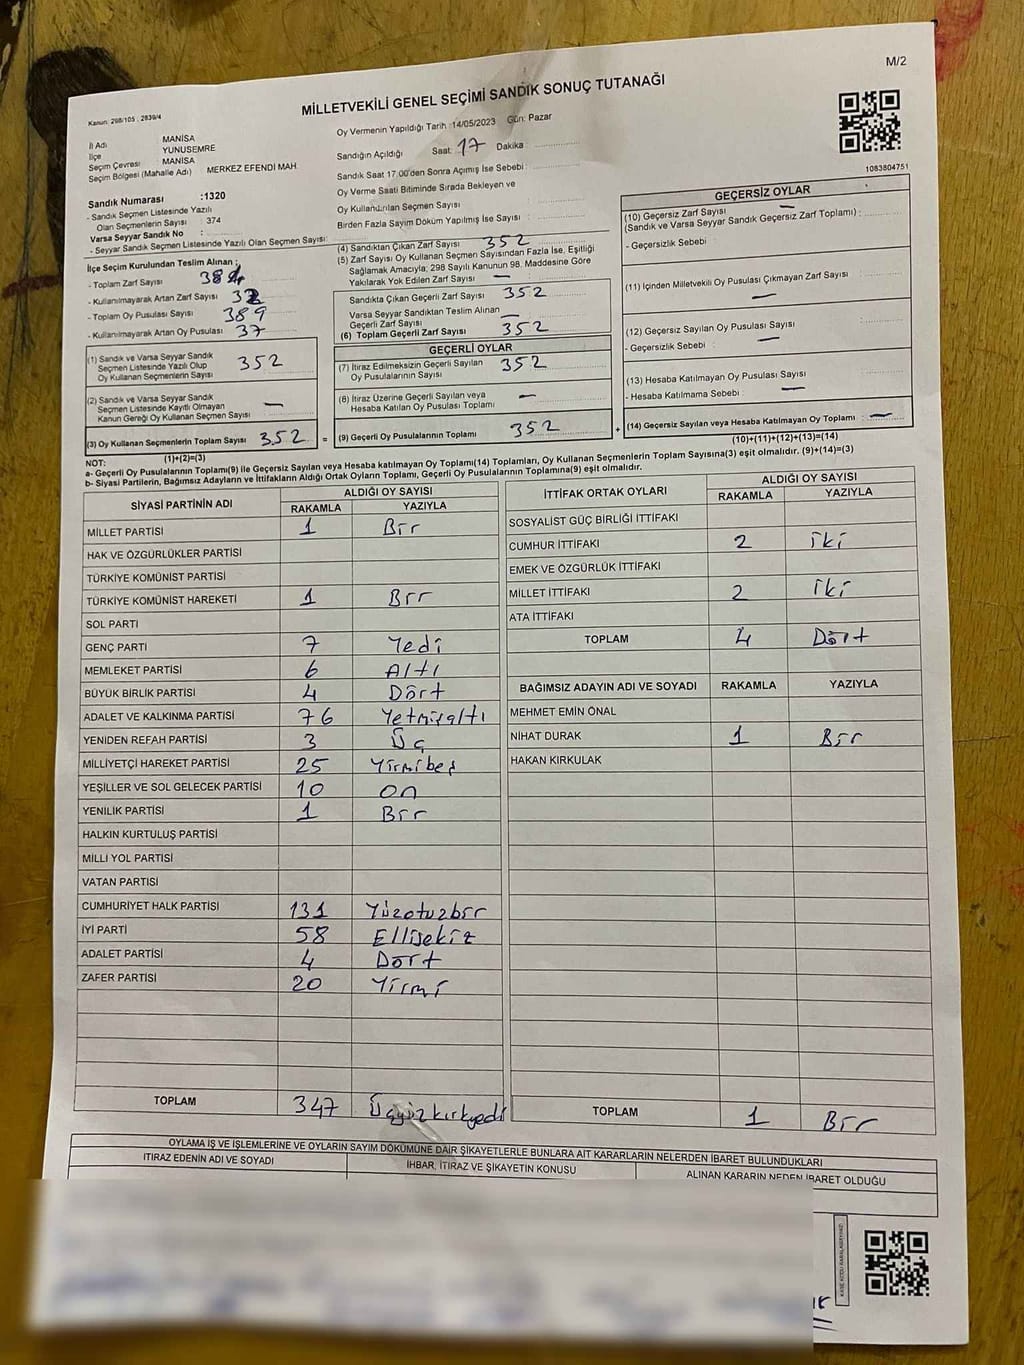 M/2
MİLLETVEKİLİ GENEL SEÇİMİ SANDIK SONUÇ TUTANAĞI
Kanun: 298/105 , 2839/4
İl Adı MANİSA
İlçe YUNUSEMRE
Seçim Çevresi MANİSA
Seçim Bölgesi (Mahalle Adı) MERKEZ EFENDİ MAH
Sandık Numarası :1320
- Sandık Seçmen Listesinde Yazılı
Olan Seçmenlerin Sayısı : 374
Varsa Seyyar Sandık No :
- Seyyar Sandık Seçmen Listesinde Yazılı Olan Seçmen Sayısı:
İlçe Seçim Kurulundan Teslim Alınan ;
- Toplam Zarf Sayısı 384
- Kullanılmayarak Artan Zarf Sayısı 32
- Toplam Oy Pusulası Sayısı 389
- Kullanılmayarak Artan Oy Pusulası 37
(1) Sandık ve Varsa Seyyar Sandık
Seçmen Listesinde Yazılı Olup
Oy Kullanan Seçmenlerin Sayısı 352
(2) Sandık ve Varsa Seyyar Sandık
Seçmen Listesinde Kayıtlı Olmayan
Kanun Gereği Oy Kullanan Seçmen Sayısı —
(3) Oy Kullanan Seçmenlerin Toplam Sayısı 352 =
(1)+(2)=(3)
Oy Vermenin Yapıldığı Tarih :14/05/2023 Gün: Pazar
Sandığın Açıldığı Saat: 17 Dakika :
Sandık Saat 17.00'den Sonra Açımış İse Sebebi :
Oy Verme Saati Bitiminde Sırada Bekleyen ve
Oy Kullandırılan Seçmen Sayısı :
Birden Fazla Sayım Döküm Yapılmış İse Sayısı :
(4) Sandıktan Çıkan Zarf Sayısı 352
(5) Zarf Sayısı Oy Kullanan Seçmen Sayısından Fazla İse, Eşitliği
Sağlamak Amacıyla; 298 Sayılı Kanunun 98. Maddesine Göre
Yakılarak Yok Edilen Zarf Sayısı —
Sandıkta Çıkan Geçerli Zarf Sayısı 352
Varsa Seyyar Sandıktan Teslim Alınan
Geçerli Zarf Sayısı —
(6) Toplam Geçerli Zarf Sayısı 352
GEÇERLİ OYLAR
(7) İtiraz Edilmeksizin Geçerli Sayılan
Oy Pusulalarının Sayısı 352
(8) İtiraz Üzerine Geçerli Sayılan veya
Hesaba Katılan Oy Pusulası Toplamı —
(9) Geçerli Oy Pusulalarının Toplamı 352 +
1083804751
GEÇERSİZ OYLAR
(10) Geçersiz Zarf Sayısı —
(Sandık ve Varsa Seyyar Sandık Geçersiz Zarf Toplamı) :
- Geçersizlik Sebebi :
(11) İçinden Milletvekili Oy Pusulası Çıkmayan Zarf Sayısı
—
(12) Geçersiz Sayılan Oy Pusulası Sayısı :
- Geçersizlik Sebebi : —
(13) Hesaba Katılmayan Oy Pusulası Sayısı :
- Hesaba Katılmama Sebebi : —
(14) Geçersiz Sayılan veya Hesaba Katılmayan Oy Toplamı : —
(10)+(11)+(12)+(13)=(14)
NOT:
a- Geçerli Oy Pusulalarının Toplamı(9) ile Geçersiz Sayılan veya Hesaba katılmayan Oy Toplamı(14) Toplamları, Oy Kullanan Seçmenlerin Toplam Sayısına(3) eşit olmalıdır. (9)+(14)=(3)
b- Siyasi Partilerin, Bağımsız Adayların ve İttifakların Aldığı Ortak Oyların Toplamı, Geçerli Oy Pusulalarının Toplamına(9) eşit olmalıdır.
SİYASİ PARTİNİN ADI ALDIĞI OY SAYISI
RAKAMLA YAZIYLA
MİLLET PARTİSİ 1 Bir
HAK VE ÖZGÜRLÜKLER PARTİSİ
TÜRKİYE KOMÜNİST PARTİSİ
TÜRKİYE KOMÜNİST HAREKETİ 1 Bir
SOL PARTİ
GENÇ PARTİ 7 Yedi
MEMLEKET PARTİSİ 6 Altı
BÜYÜK BİRLİK PARTİSİ 4 Dört
ADALET VE KALKINMA PARTİSİ 76 Yetmişaltı
YENİDEN REFAH PARTİSİ 3 Üç
MİLLİYETÇİ HAREKET PARTİSİ 25 Yirmibeş
YEŞİLLER VE SOL GELECEK PARTİSİ 10 On
YENİLİK PARTİSİ 1 Bir
HALKIN KURTULUŞ PARTİSİ
MİLLİ YOL PARTİSİ
VATAN PARTİSİ
CUMHURİYET HALK PARTİSİ 131 Yüzotuzbir
İYİ PARTİ 58 Ellisekiz
ADALET PARTİSİ 4 Dört
ZAFER PARTİSİ 20 Yirmi
TOPLAM 347 Üçyüzkırkyedi
İTTİFAK ORTAK OYLARI ALDIĞI OY SAYISI
RAKAMLA YAZIYLA
SOSYALİST GÜÇ BİRLİĞİ İTTİFAKI
CUMHUR İTTİFAKI 2 iki
EMEK VE ÖZGÜRLÜK İTTİFAKI
MİLLET İTTİFAKI 2 iki
ATA İTTİFAKI
TOPLAM 4 Dört
BAĞIMSIZ ADAYIN ADI VE SOYADI RAKAMLA YAZIYLA
MEHMET EMİN ÖNAL
NİHAT DURAK 1 Bir
HAKAN KIRKULAK
TOPLAM 1 Bir
OYLAMA İŞ VE İŞLEMLERİNE VE OYLARIN SAYIM DÖKÜMÜNE DAİR ŞİKAYETLERLE BUNLARA AİT KARARLARIN NELERDEN İBARET BULUNDUKLARI
İTİRAZ EDENİN ADI VE SOYADI İHBAR, İTİRAZ VE ŞİKAYETİN KONUSU ALINAN KARARIN NEDEN İBARET OLDUĞU